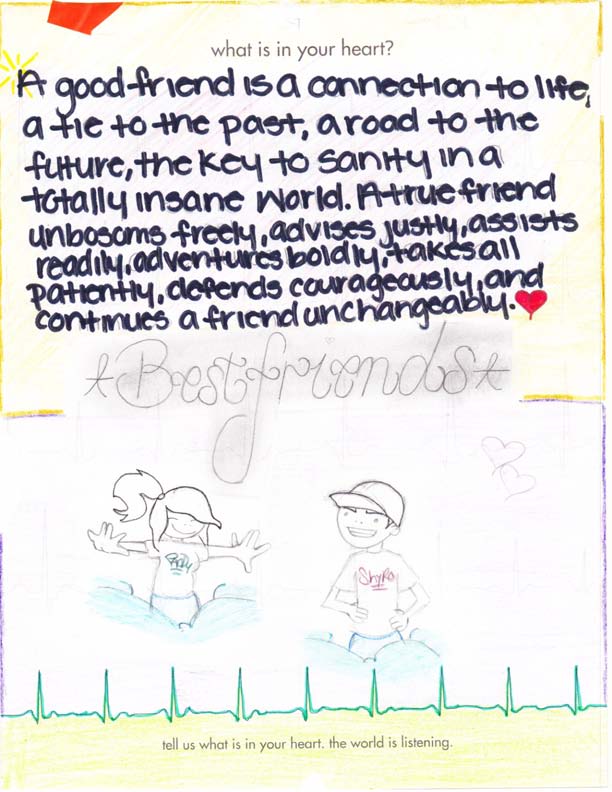 what is in your heart?
A good friend is a connection to life,
a tie to the past, a road to the
future, the key to sanity in a
totally insane world. A true friend
unbosoms freely, advises justly, assists
readily, adventures boldly, takes all
patiently, defends courageously, and
continues a friend unchangeably.
Best friends
Shyra
tell us what is in your heart. the world is listening.